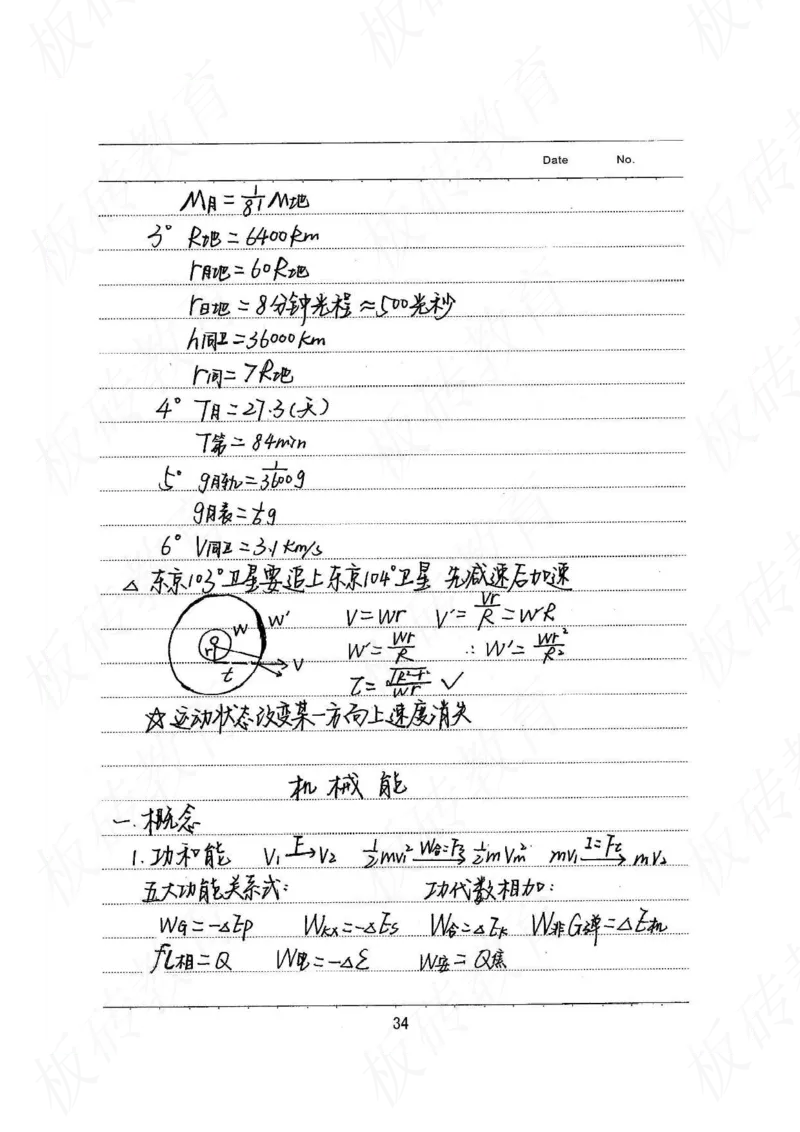 Date No.
M月=1/81 M地
3° R地=6400km
r月地=60R地
r日地=8分钟光程≈500光秒
h同卫=36000km
r同=7R地
4° T月=27.3(天)
T第=84min
5° g月轨=1/3600 g
g月表=1/6 g
6° V同卫=3.1km/s
△ 东京103°卫星要追上东京104°卫星 先减速后加速
W W' V=Wr V'=Vr/R=WR
r V W'=Wr/R ∴W'=Wr²/R²
t τ=√(R²-r²)/Wr ✓
☆运动状态改变某一方向上速度消失
机械能
一.概念
1.功和能 V₁ F→ V₂ ½mv₁² W合=Fs→ ½mVm² mv₁ I=Ft→ mv₂
五大功能关系式: 功代数相加:
WG=-△Ep Wkx=-△Es W合=△Ek W非G弹=△E机
fL相=Q W电=-△ε W安=Q焦
34
板砖教育